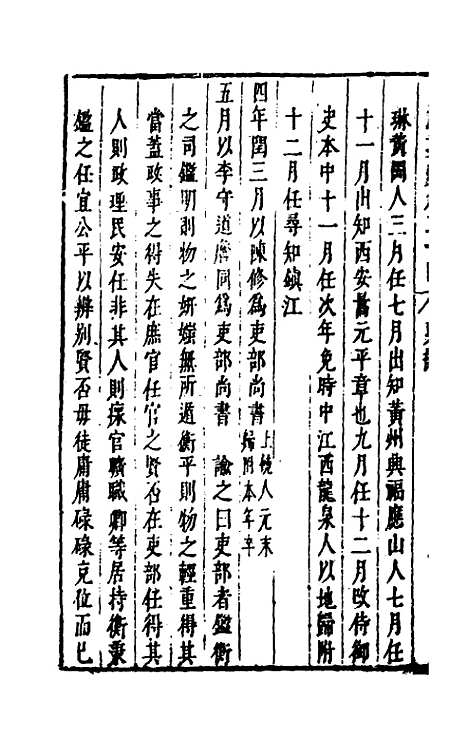 琳黃岡人三月任七月出知黃州典福應山人七月任
十一月出知西安舊元平章也九月任十二月改侍御
史本中十一月任次年免時中江西龍泉人以地歸附
十二月任尋知鎮江
四年閏三月以陳修為吏部尚書上饒人元末歸附本年卒
五月以李守道詹同為吏部尚書　諭之曰吏部者鑑衡
之司鑑明則物之妍媸無所遁衡平則物之輕重得其
當蓋政事之得失在庶官任官之賢否在吏部任得其
人則政理民安任非其人則瘝官曠職卿等居持衡秉
鑑之任宜公平以辨別賢否毋徒庸庸碌碌充位而已